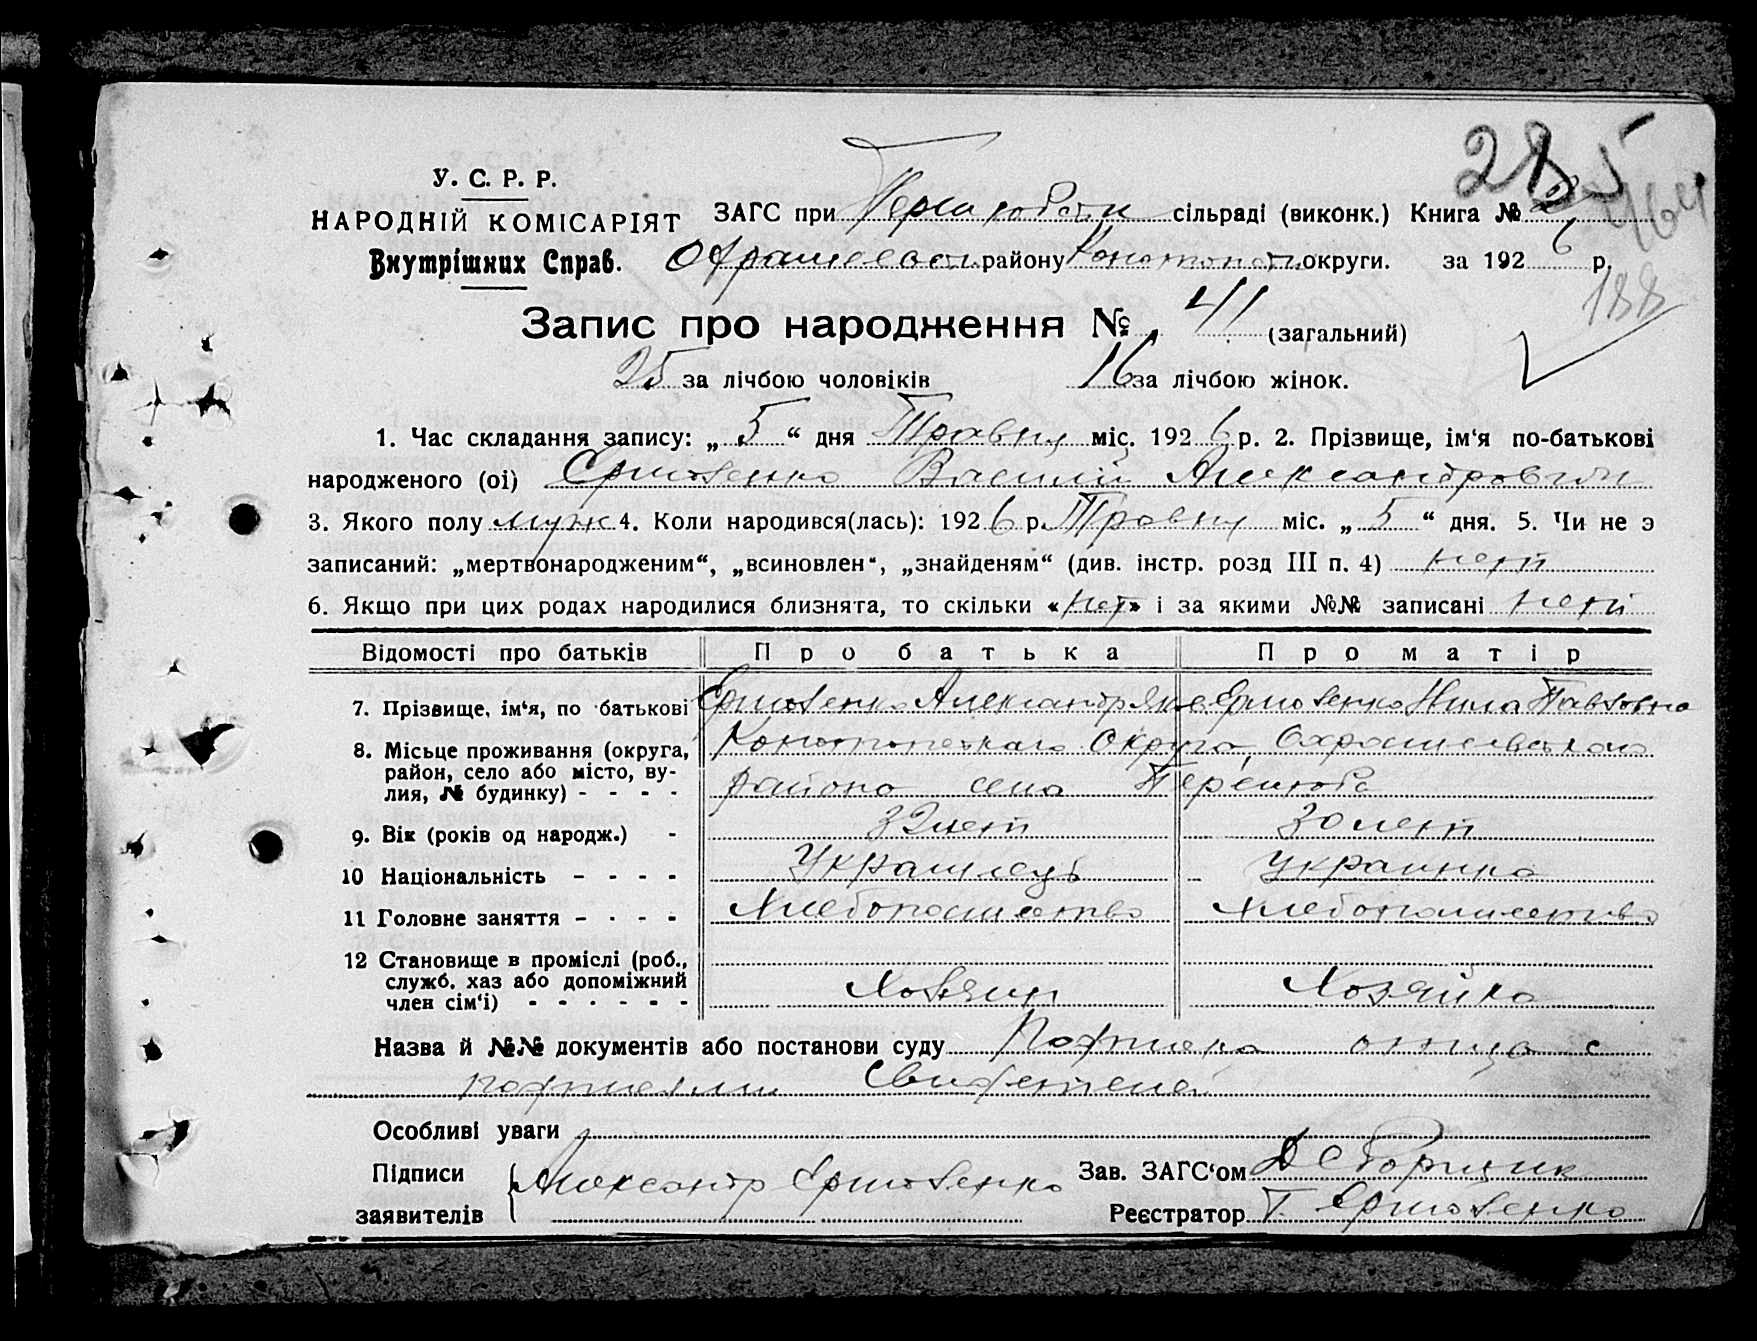 285
464
188
У. С. Р. Р.
НАРОДНІЙ КОМІСАРІЯТ
Внутрішних Справ.
ЗАГС при сільраді (виконк.) Книга № 2
району Конотопск. округи. за 1926 р.
Запис про народження № 41 (загальний)
25 за лічбою чоловіків 16 за лічбою жінок.
1. Час складання запису: „ 5 “ дня Травня міс. 1926 р. 2. Прізвище, ім‘я по-батькові
народженого (ої) Ермоленко Василий Александрович
3. Якого полу муж 4. Коли народився(лась): 1926 р. Травня міс. „ 5 “ дня. 5. Чи не э
записаний: „мертвонародженим“, „всиновлен“, „знайденям“ (див. інстр. розд III п. 4) нет
6. Якщо при цих родах народилися близнята, то скільки «нет» і за якими №№ записані нет
Відомості про батьків Про батька Про матір
7. Прізвище, ім‘я, по батькові Ермоленко Александр Яков Ермоленко Нина Павловна
8. Місьце проживання (округа, Конотопского Округа,
район, село або місто, ву- района села
лия, № будинку) - - - -
9. Вік (років од народж.) - 32 лет 30 лет
10 Національність - - - - Украинец Украинка
11 Головне заняття - - - - Хлебопашество Хлебопашество
12 Становище в проміслі (роб.,
служб. хаз або допоміжний Хозяин Хозяйка
член сім‘і) - - - - - -
Назва й №№ документів або постанови суду Подписка отца с
подписями Свидетелей
Особливі уваги
Підписи Александр Ермоленко Зав. ЗАГС‘ом
заявителів Реєстратор Т. Ермоленко